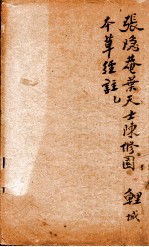 張隐菴葉天士陳修園
本草經註
乜
鲤城